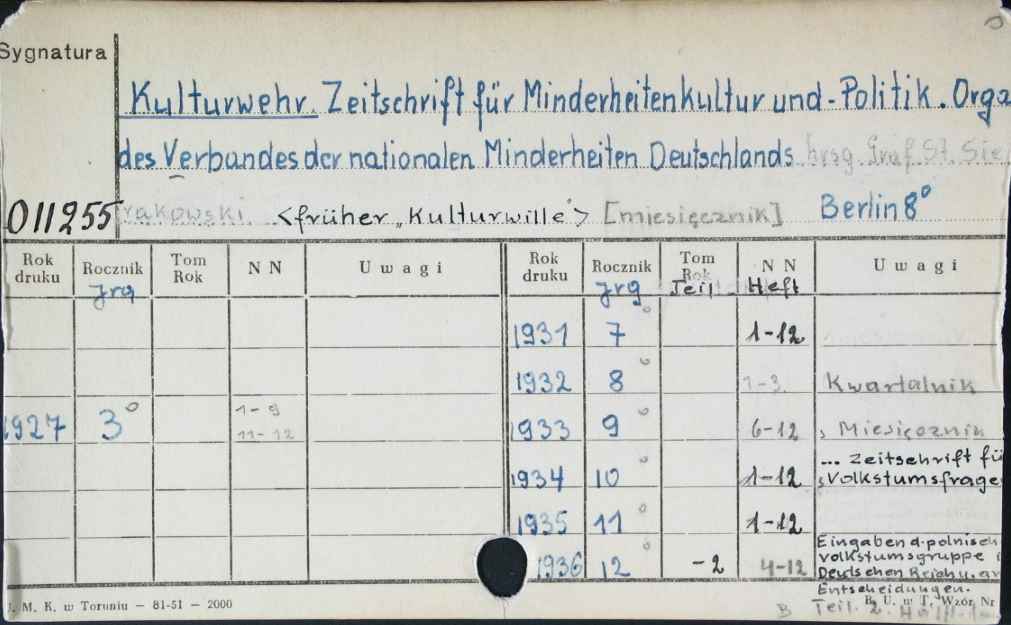 Sygnatura
Kulturwehr. Zeitschrift für Minderheitenkultur und - Politik. Orga
des Verbandes der nationalen Minderheiten Deutschlands hrsg. Graf St. Sie
011255 rakowski. <früher „Kulturwille"> [miesięcznik] Berlin 8°
Rok druku Rocznik Jrg Tom Rok N N Uwagi Rok druku Rocznik Jrg Tom Rok Teil N N Heft Uwagi
1931 7° 1-12
1932 8° 1-3 Kwartalnik
1927 3° 1-9 11-12 1933 9° 6-12 , Miesięcznik
1934 10° 1-12 ... Zeitschrift fü , Volkstumsfrage
1935 11° 1-12
1936 12° -2 4-12 Eingaben d. polnisch Volkstumsgruppe i Deutschen Reich u. an
Entscheidungen.
J. M. K. w Toruniu — 81-51 — 2000 B. U. w T. Wzór Nr
B Teil. 2.